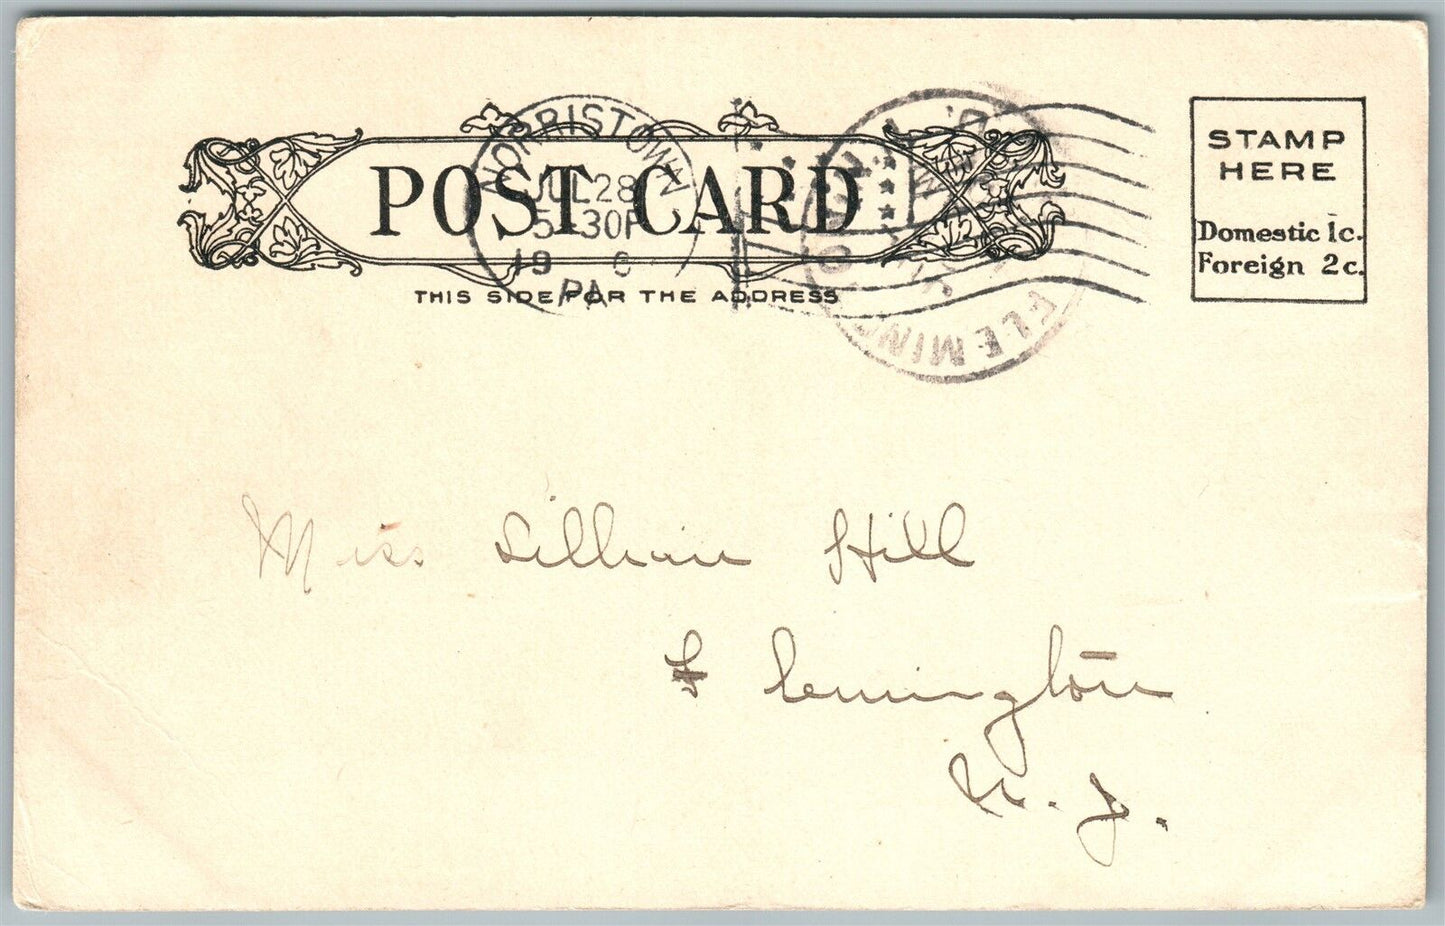 POST CARD
THIS SIDE FOR THE ADDRESS
NORRISTOWN
JUL 28
5 30P
19 6
PA
FLEMINGTON
STAMP
HERE
Domestic 1c.
Foreign 2c.
Miss Lillian Hill
Flemington
N. J.